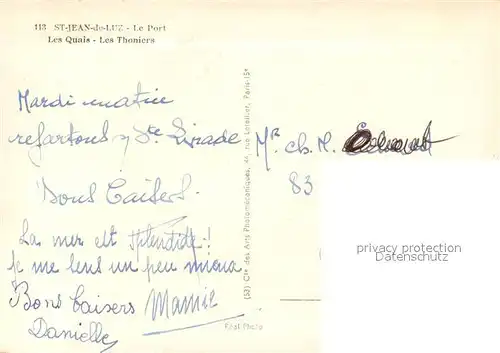 113 ST-JEAN-de-LUZ - Le Port
Les Quais - Les Thoniers
Mardi matin
repartons Ste Livrade
Bons Baisers.
La mer est splendide!
je me sens un peu mieux
Bons Baisers Mamie
Danielle
(53) Cie des Arts Photomécaniques, 44, rue Letellier, Paris-15e
Réal-Photo
Mr Ch. M.
83
privacy protection
Datenschutz